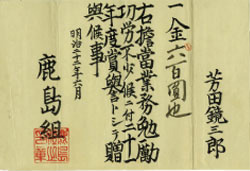 芳田鏡三郎
一金六百圓也
右擔當業務勉勵
功労不少候ニ付二十一
年度賞與金トシテ贈
與候事
明治二十二年六月
鹿島組